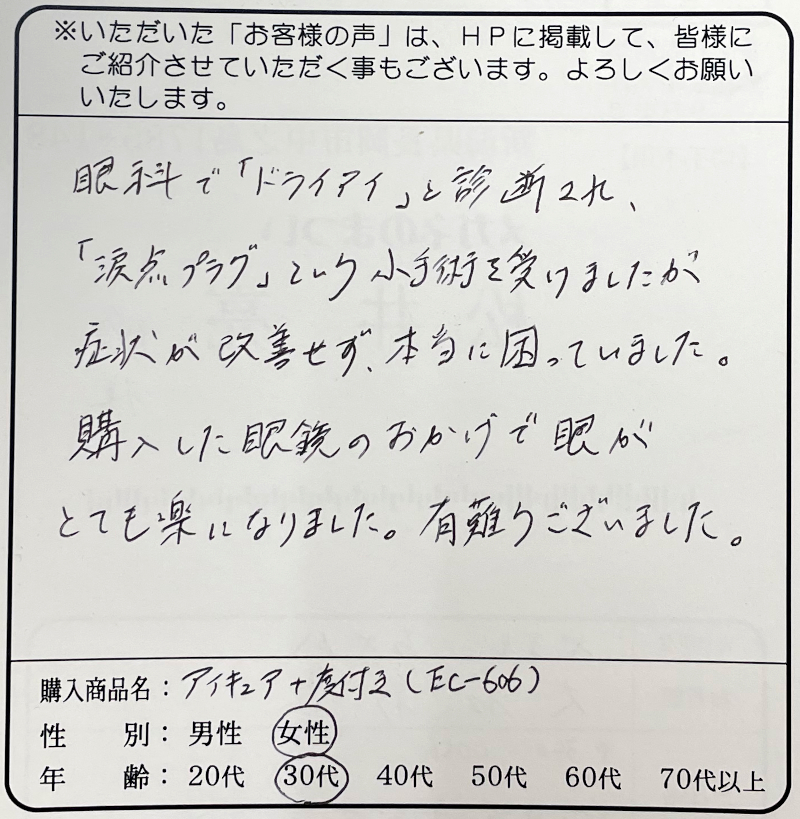 ※いただいた「お客様の声」は、HPに掲載して、皆様に
ご紹介させていただく事もございます。よろしくお願い
いたします。
眼科で「ドライアイ」と診断され、
「涙点プラグ」という小手術を受けましたが
症状が改善せず、本当に困っていました。
購入した眼鏡のおかげで眼が
とても楽になりました。有難うございました。
購入商品名：アイキュア+度付き(EC-606)
性　別：男性　女性
年　齢：20代　30代　40代　50代　60代　70代以上